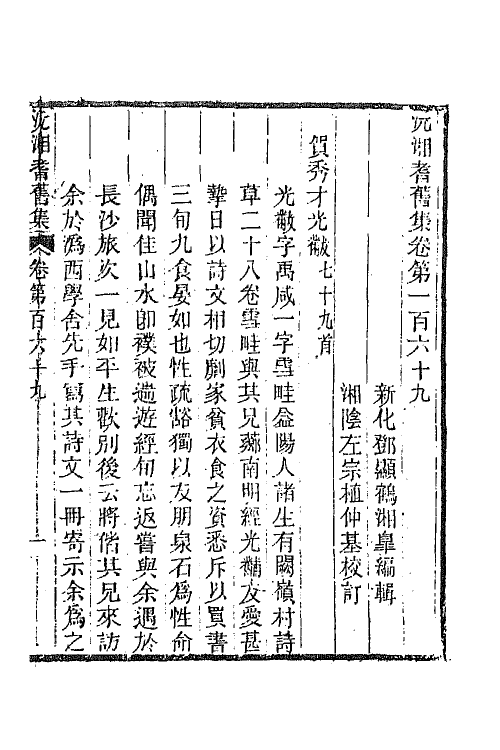 沅湘耆舊集卷第一百六十九
新化鄧顯鶴湘臯編輯
湘陰左宗植仲基校訂
賀秀才光黻七十九首
光黻字禹咸一字雪畦益陽人諸生有關嶺村詩
草二十八卷雪畦與其兄蘇南明經光黼友愛甚
摯日以詩文相切劘家貧衣食之資悉斥以買書
三旬九食晏如也性疏豁獨以友朋泉石爲性命
偶聞佳山水卽襆被遄遊經旬忘返嘗與余遇於
長沙旅次一見如平生歡別後云將偕其兄來訪
余於潙西學舍先手寫其詩文一冊寄示余爲之
沅湘耆舊集 卷第百六十九 一